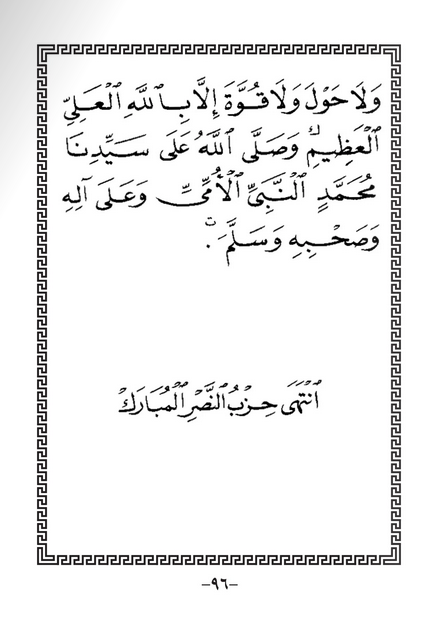 وَلَا حَوْلَ وَلَا قُوَّةَ إِلَّا بِاللَّهِ الْعَلِيِّ
الْعَظِيمِ ك وَصَلَّى اللَّهُ عَلَى سَيِّدِنَا
مُحَمَّدٍ النَّبِيِّ الْأُمِّيِّ وَعَلَى آلِهِ
وَصَحْبِهِ وَسَلَّمَ ت .
انْتَهَى حِزْبُ النَّصْرِ الْمُبَارَكْ
-٩٦-